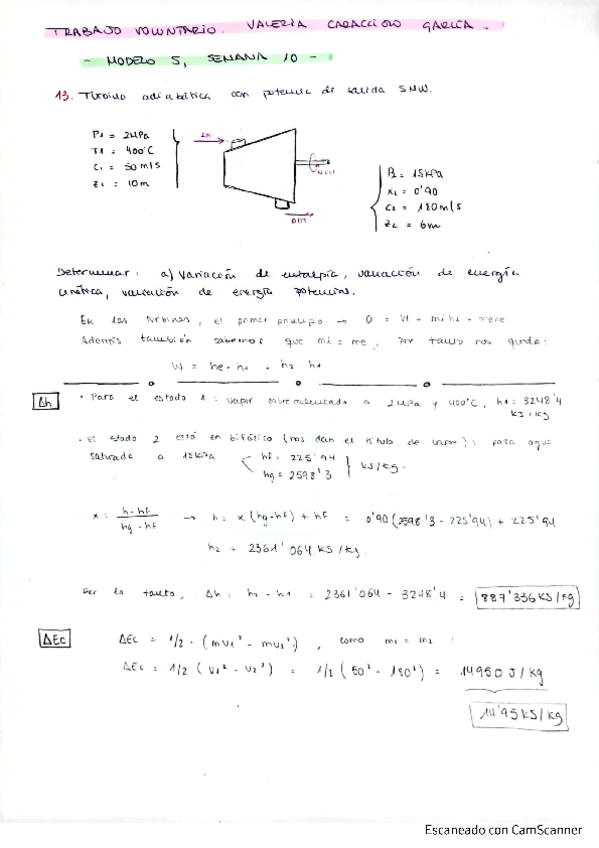 TRABAJO VOLUNTARIO. VALERIA CARACCIOLO GARCÍA.
- MODELO 5, SEMANA 10 -
13. Turbina adiabática con potencia de salida 5MW.
P1 = 2MPa
T1 = 400°C
C1 = 50 m/s
Z1 = 10m
IN
OUT
P2 = 15kPa
x2 = 0'90
C2 = 180m/s
Z2 = 6m
Determinar: a) Variación de entalpía, variación de energía
cinética, variación de energía potencial.
En las turbinas, el primer principio → 0 = W + mihi - mehe.
Además también sabemos que mi = me, por tanto nos queda:
W = he - hi = h2 - h1
Δh
• Para el estado 1: vapor sobrecalentado a 2MPa y 400°C, h1 = 3248'4
kJ/kg
• el estado 2 está en bifásico (nos dan el título de vapor): para agua
saturada a 15kPa
hf = 225'94
hg = 2598'3
kJ/kg.
x = h-hf / hg-hf → h = x(hg-hf) + hf = 0'90(2598'3 - 225'94) + 225'94
h2 = 2361'064 kJ/kg.
Por lo tanto, Δh = h2 - h1 = 2361'064 - 3248'4 = 887'336 KJ/Kg
ΔEc
ΔEc = 1/2 · (mv1² - mv2²), como m1 = m2 :
ΔEc = 1/2 (v1² - v2²) = 1/2 (50² - 180²) = 14950 J/kg
14'95 kJ/kg
Escaneado con CamScanner